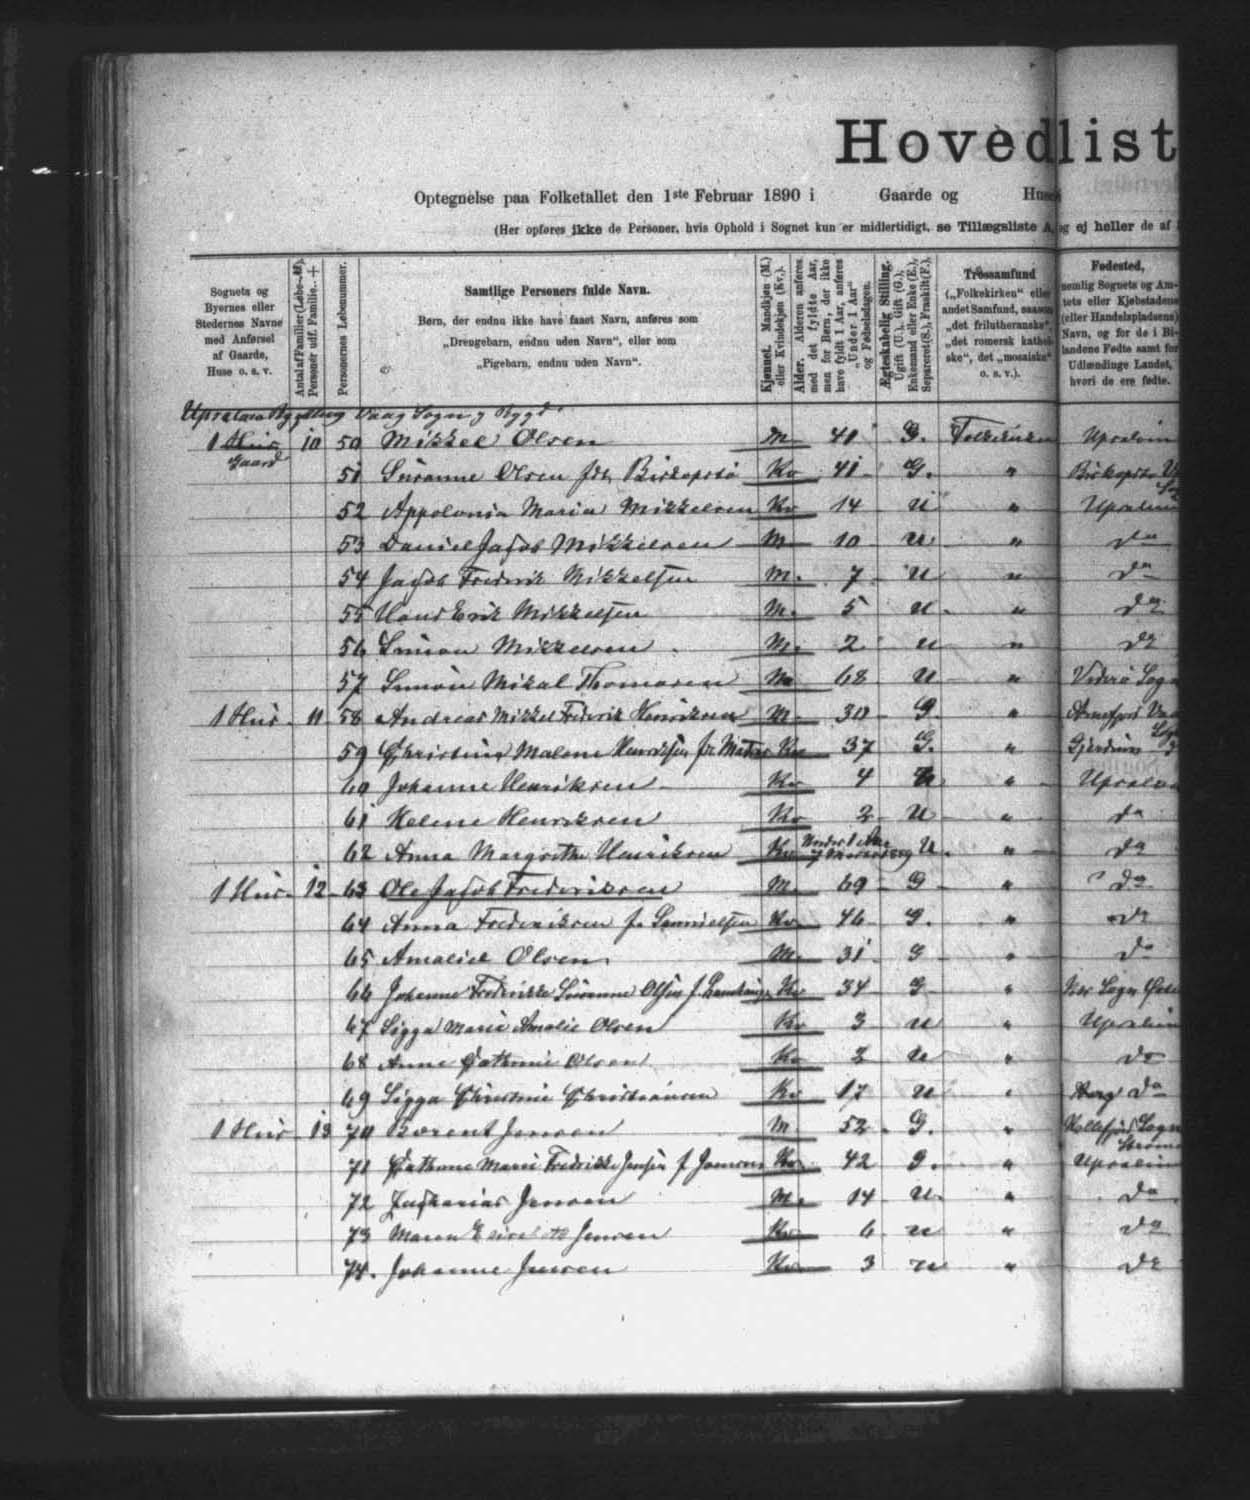 Hovedlist
Optegnelse paa Folketallet den 1ste Februar 1890 i Gaarde og Huse
(Her opføres ikke de Personer, hvis Ophold i Sognet kun er midlertidigt, se Tillægsliste A, og ej heller de af
Sognets og Byernes eller Stedernes Navne med Anførsel af Gaarde, Huse o. s. v.
Antal af Familier (Løbe-№). Personer udf. Familie.. +
Personernes Løbenummer.
Samtlige Personers fulde Navn.
Børn, der endnu ikke have faaet Navn, anføres som
„Drengebarn, endnu uden Navn“, eller som
„Pigebarn, endnu uden Navn“.
Kjønnet. Mandkjøn (M.) eller Kvindekjøn (Kv.).
Alder. Alderen anføres med det fyldte Aar, men for Børn, der ikke have fyldt 1 Aar, anføres „Under 1 Aar“ og Fødselsdagen.
Ægteskabelig Stilling. Ugift (U.), Gift (G.), Enkemand eller Enke (E.), Separeret (S.), Fraskilt (F.).
Trossamfund („Folkekirken“ eller andet Samfund, saasom „det frilutheranske“, „det romersk katholske“, det „mosaiske“ o. s. v.).
Fødested, nemlig Sognets og Amtets eller Kjøbstadens (eller Handelspladsens) Navn, og for de i Bilandene Fødte samt for Udlændinge Landet, hvori de ere fødte.
Vaag Sogn Bygd
1 Hus 10 50 Mikkel Olsen M 41 G. Folkekirken
Gaard
51 Susanne Olsen Kv 41 G. "
52 Appolonia Maria Mikkelsen Kv 14 U "
53 Daniel Jacob Mikkelsen M 10 U " do
54 Jacob Frederik Mikkelsen M. 7 U " do
55 Hans Erik Mikkelsen M. 5 U " do
56 Simon Mikkelsen M. 2 U " do
57 Simon Mikal Thomasen M 68 U " Viderø Sogn
1 Hus 11 58 Andreas Mikkel Frederik Henriksen M 30 G " Arnefjord
59 Christine Malene Henriksen Kv 37 G. "
60 Johanne Henriksen Kv 4 U "
61 Helene Henriksen Kv 2 U " do
62 Anna Margrethe Henriksen Kv Under 1 Aar U "  do
1 Hus 12 63 Ole Jacob Frederiksen M. 69 G " do
64 Anna Frederiksen f. Kv 46 G. " do
65 Olsen M. 31 G " do
66 Johanne Frederikke Susanne Olsen f. Kv 34 G "
67 Sigga Marie Amalie Olsen Kv 3 U "
68 Anne Cathrine Olsen Kv 2 U " do
69 Sigga Christine Christiansen Kv 17 U " do
1 Hus 13 70 Jensen M. 52 G. " Sogn
71 Cathrine Marie Frederikke Jensen f. Kv 42 G. "
72 Zacharias Jensen M. 14 U. " do
73 Maren Jensen Kv 6 U " do
74. Johanne Jensen Kv 3 U " do